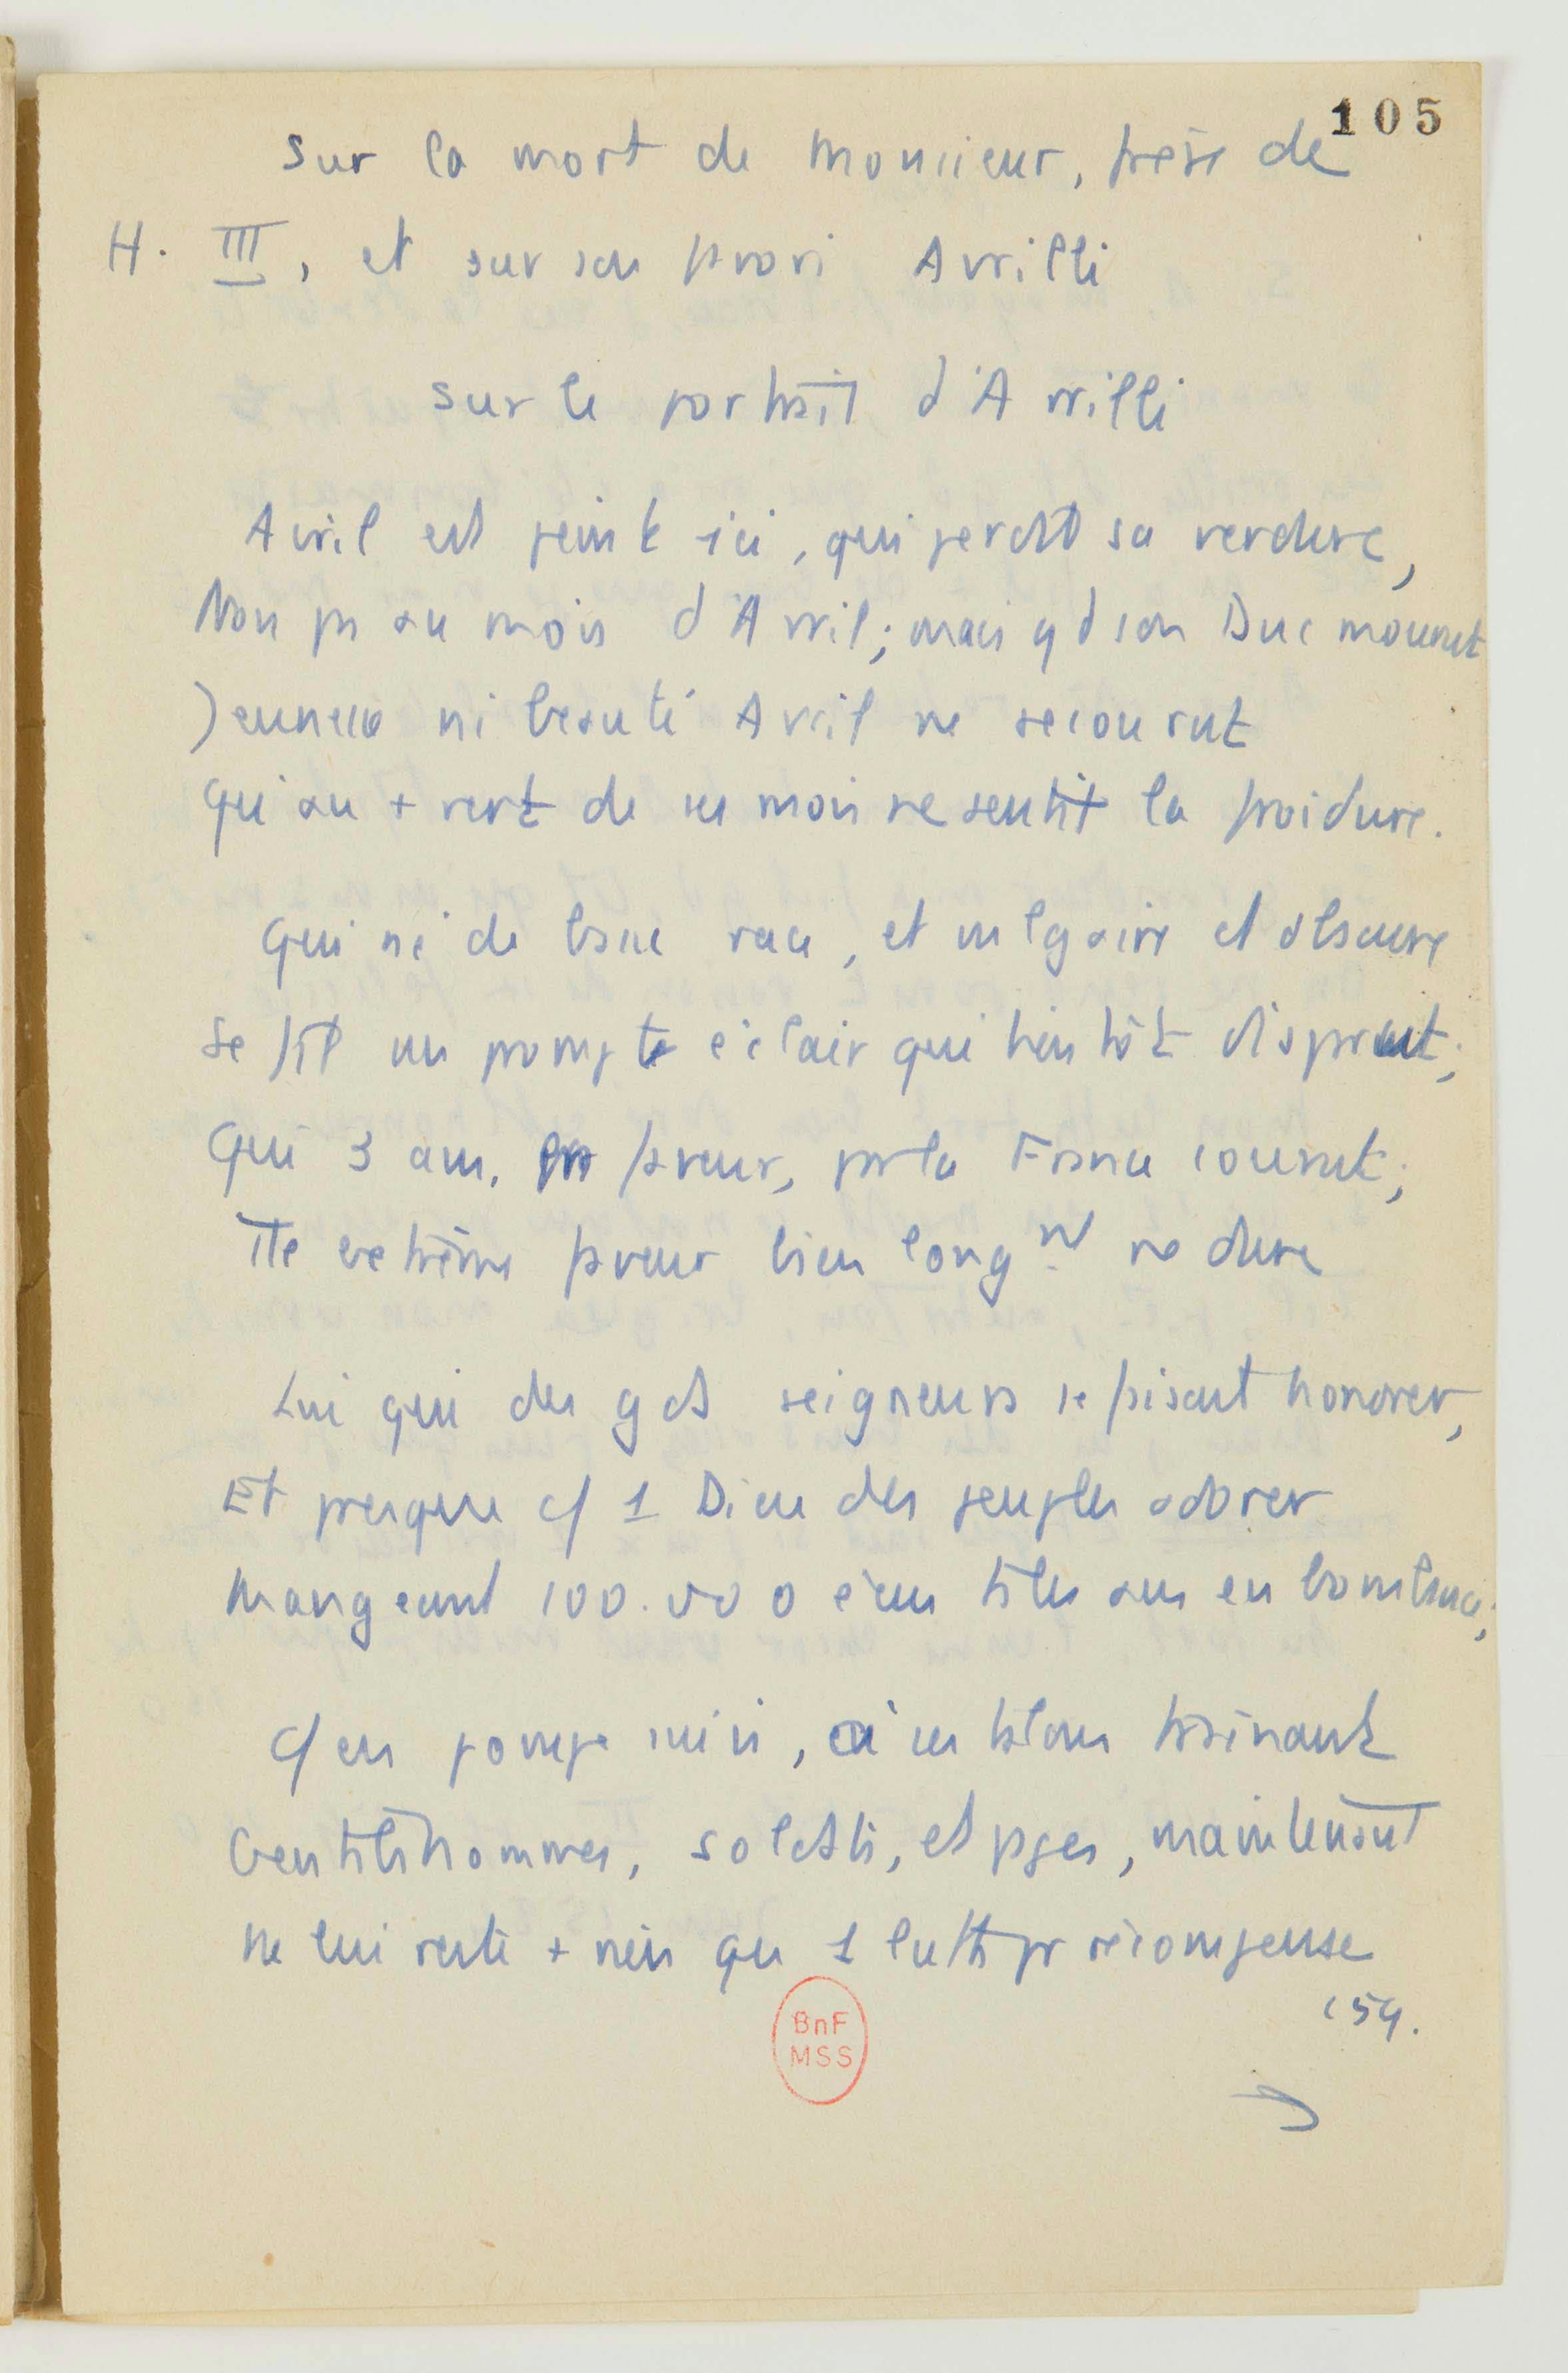 105
Sur la mort de Monsieur, frère de
H. III, et sur son favori Avrilli
Sur le portrait d'Avrilli
Avril est peint ici, qui perdit sa verdure,
Non pas au mois d'Avril; mais qd son Duc mourut
Jeunesse ni beauté Avril ne secourut
Qui au + vert de ses mois ressentit la froidure.
Qui né de basse race, et vulgaire et obscure
Se fit un prompt éclair qui bientôt disparut;
Qui 3 ans, en faveur, par la France courut;
Tte extrême faveur bien longt ne dure
Lui qui des gds seigneurs se faisait honorer,
Et presque c/ 1 Dieu des peuples adorer
Mangeant 100.000 écus ts les ans en bombance;
C/ en pompe suivi, à ses talons traînant
Gentilshommes, soldats, et pages, maintenant
Ne lui reste + rien qu' 1 luth pr récompense
154.
BnF
MSS